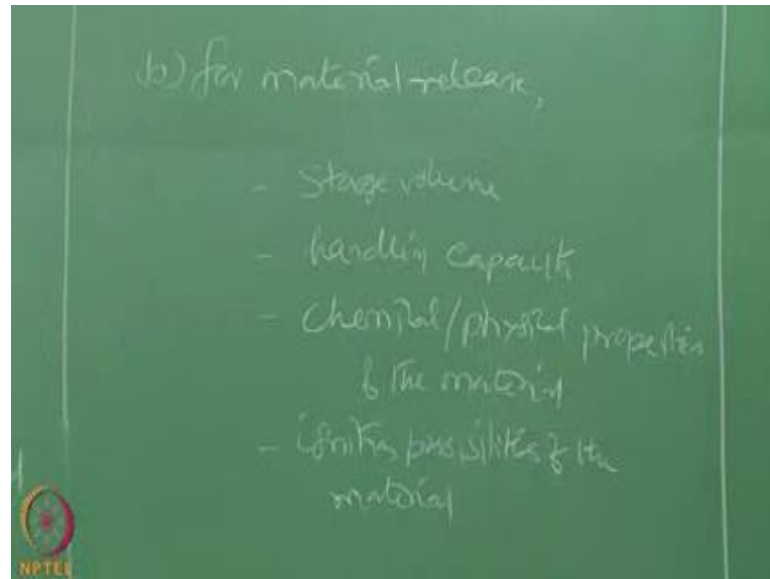 (b) for material release,
- Storage volume
- handling capacity
- Chemical/physical properties
of the material
- ignition possibilities of the
material
NPTEL